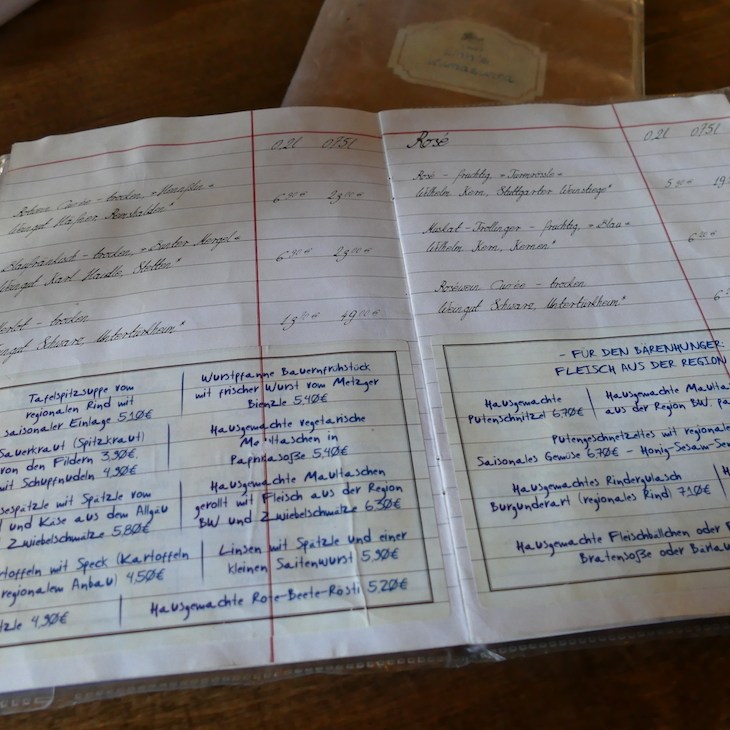 0,2l 0,75l
trocken
6,90€ 23,00€
Blaufränkisch - trocken, »Bunter Mergel«
Weingut Karl Haidle, Stetten*
6,90€ 23,00€
trocken
Weingut Schwarz, Untertürkheim*
49,00€
Tafelspitzsuppe vom
regionalen Rind mit
saisonaler Einlage 5,10€
Wurstpfanne Bauernfrühstück
mit frischer Wurst vom Metzger
Bienzle 5,40€
Sauerkraut (Spitzkraut)
von den Fildern 3,90€,
mit Schupfnudeln 4,90€
Hausgemachte vegetarische
Maultaschen in
Paprikasoße 5,40€
sespätzle mit Spätzle vom
und Käse aus dem Allgäu
Zwiebelschmälze 5,80€
Hausgemachte Maultaschen
gerollt mit Fleisch aus der Region
BW und Zwiebelschmälze 6,30€
rtoffeln mit Speck (Kartoffeln
regionalem Anbau) 4,50€
Linsen mit Spätzle und einer
kleinen Saitenwurst 5,90€
tzle 4,90€
Hausgemachte Rote-Beete-Rösti 5,20€
Rosé 0,2l 0,75l
Rosé - fruchtig,
Wilhelm Kern, Stuttgarter Weinsteige*
5,90€ 19
Muskat-Trollinger - fruchtig, »Blau«
Wilhelm Kern, Kernen*
Roséwein Cuvée - trocken
Weingut Schwarz, Untertürkheim*
- FÜR DEN BÄRENHUNGER:
FLEISCH AUS DER REGION
Hausgemachte
Putenschnitzel 6,70€
Hausgemachte Maulta
aus der Region BW, pa
Putengeschnetzeltes mit regionale
Saisonales Gemüse 6,70€ - Honig-Sesam-Sen
Hausgemachtes Rindergulasch
Burgunderart (regionales Rind) 7,10€
Hausgemachte Fleischbällchen oder F
Bratensoße oder Bärlau